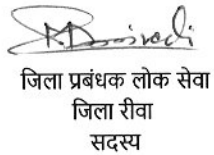 जिला प्रबंधक लोक सेवा
जिला रीवा
सदस्य